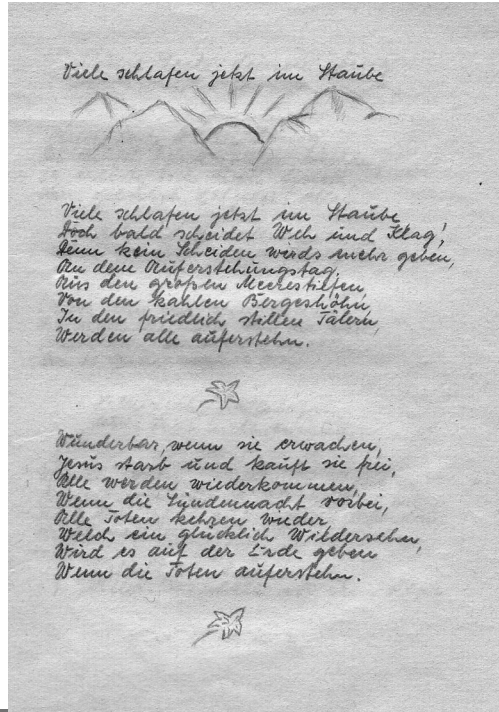 Viele schlafen jetzt im Staube
Viele schlafen jetzt im Staube
Doch bald scheidet Weh und Klag',
Denn kein Scheiden wirds mehr geben,
An dem Auferstehungstag.
Aus den großen Meerestiefen,
Von den kahlen Bergeshöhn,
In den friedlich stillen Tälern,
Werden alle auferstehn.
Wunderbar, wenn sie erwachen,
Jesus starb und kauft sie frei,
Alle werden wiederkommen,
Wenn die Sündennacht vorbei,
Alle Toten kehren wieder,
Welch ein glücklich Wildersehn,
Wird es auf der Erde geben
Wenn die Toten auferstehn.